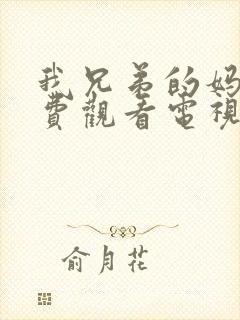 我兄弟的妈
費觀看電視
俞月花